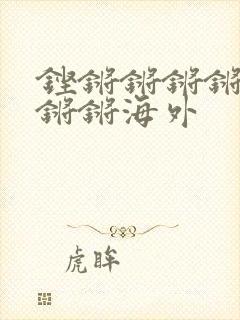 铿锵锵锵锵
锵锵海外
虎眸